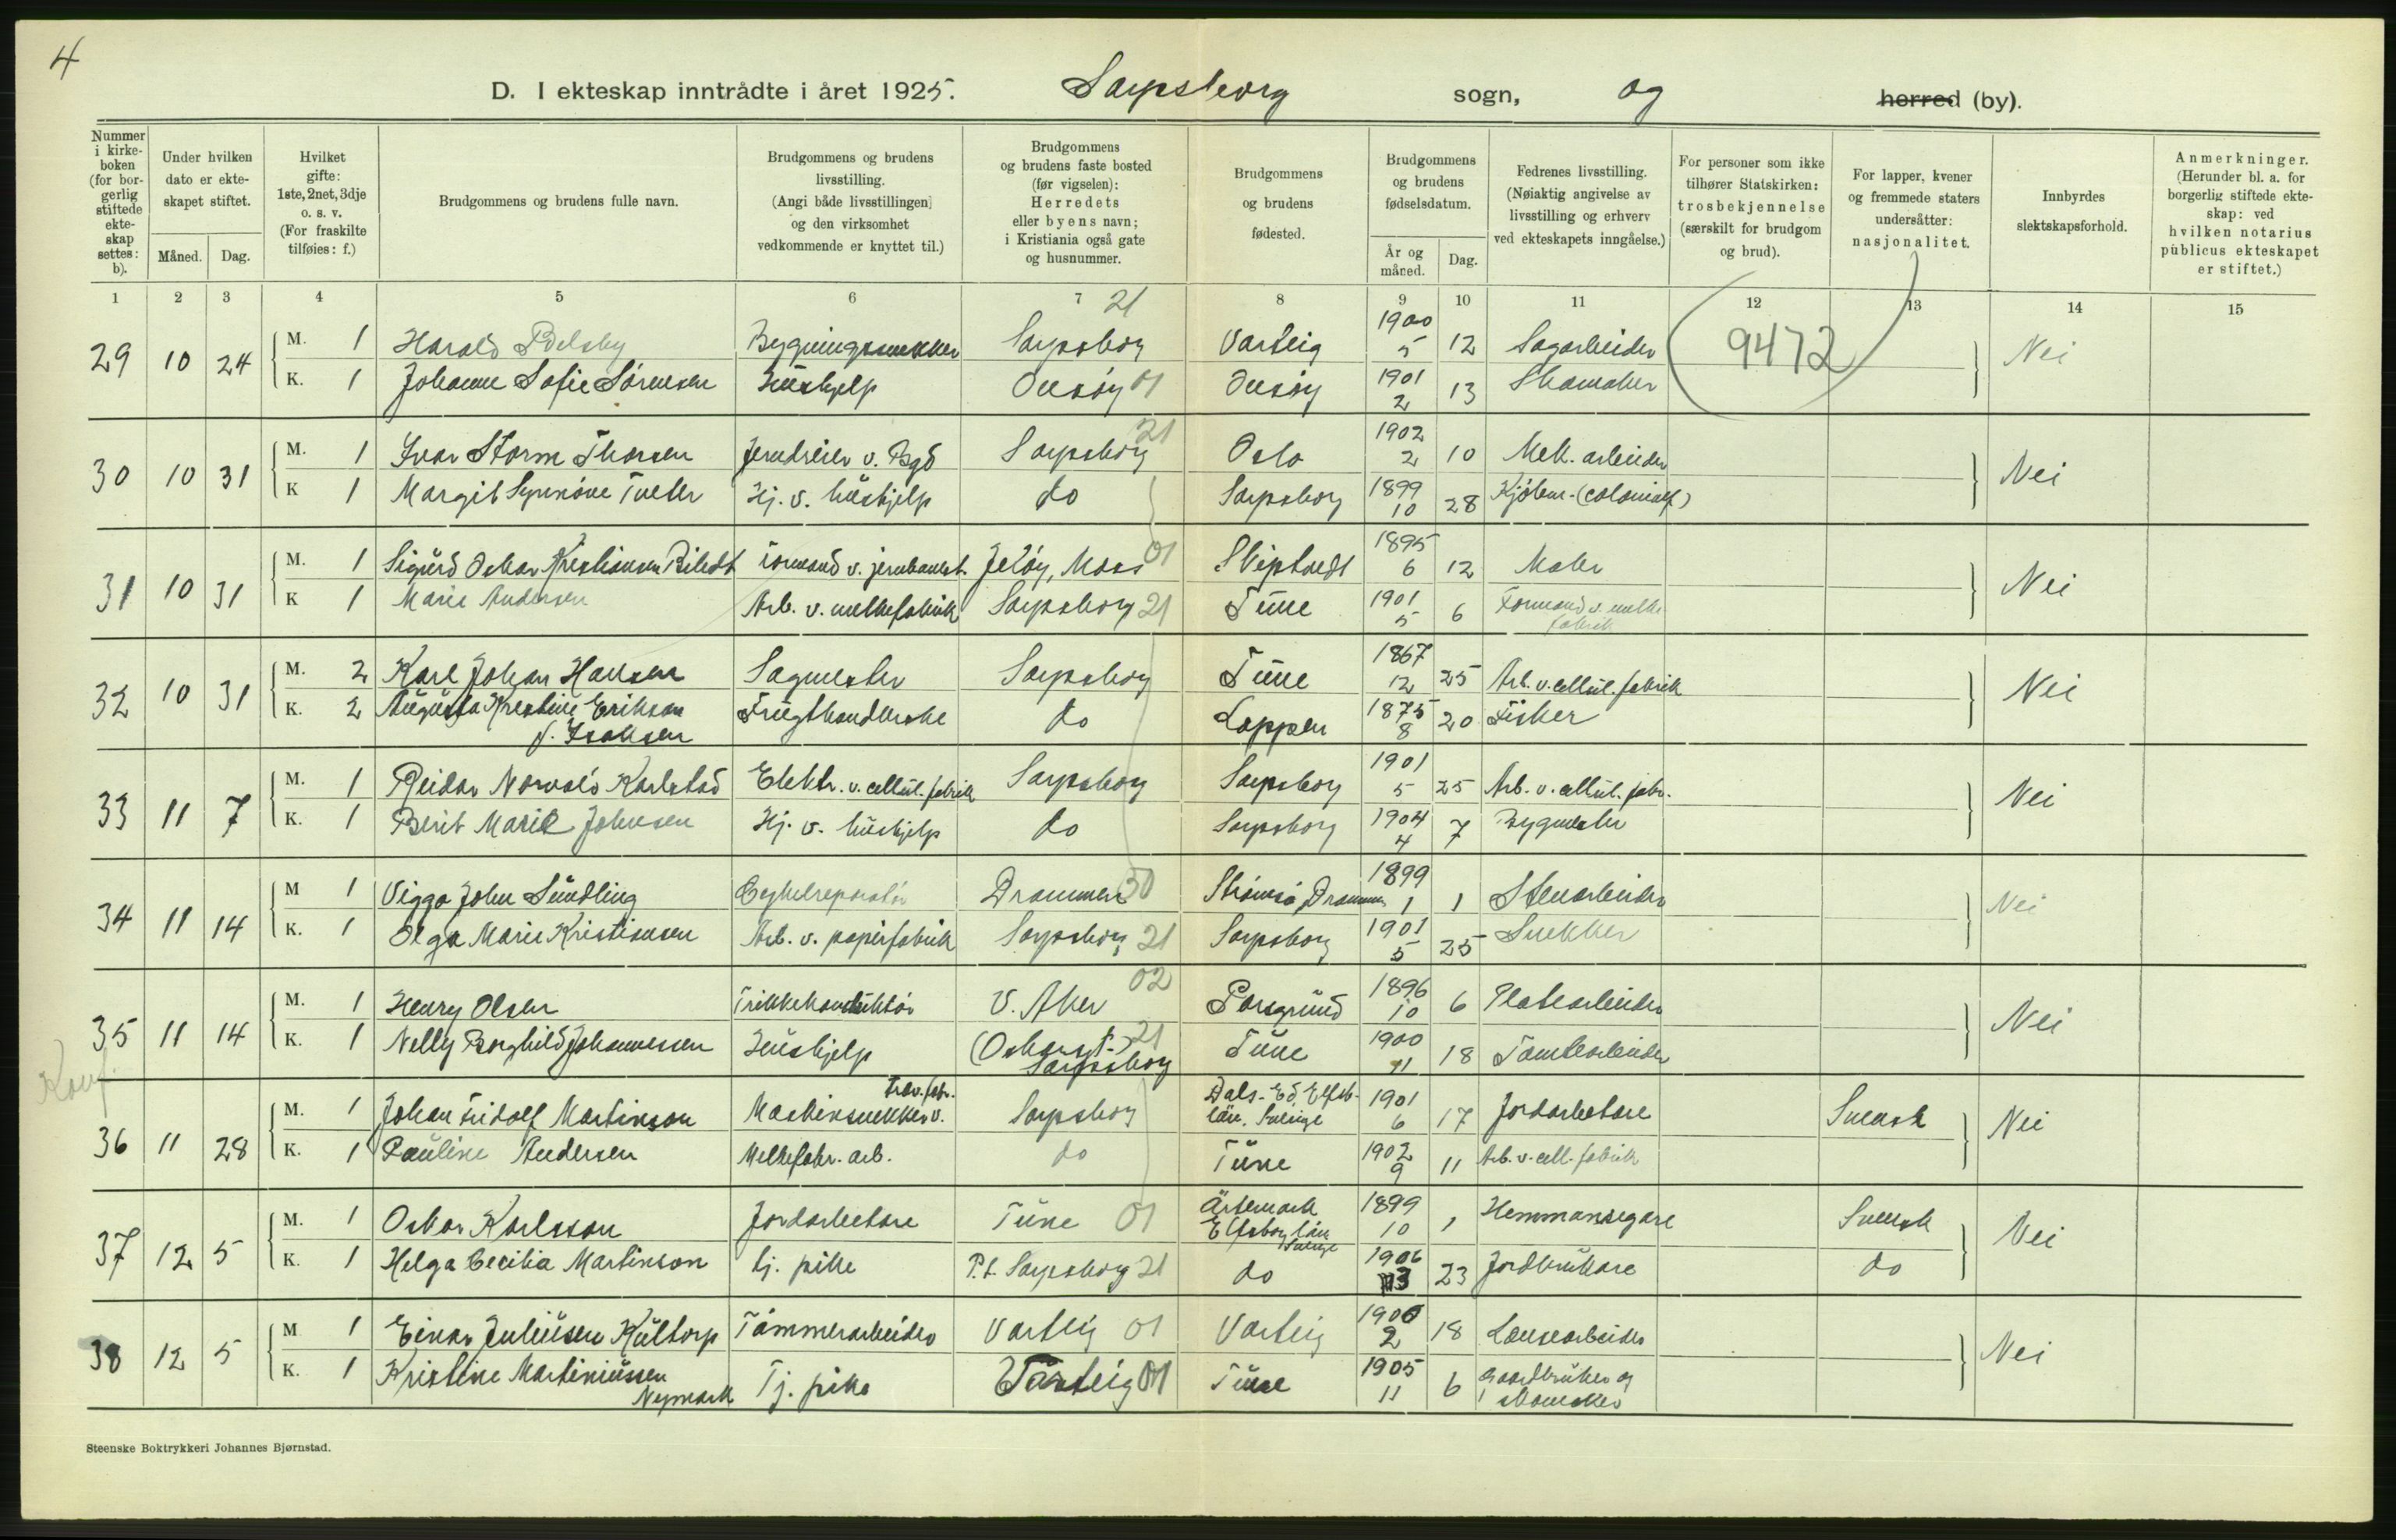 4
D. I ekteskap inntrådte i året 1925. Sarpsborg sogn, og herred (by).
Nummer i kirkeboken (for borgerlig stiftede ekteskap settes: b).
Under hvilken dato er ekteskapet stiftet.
Måned. Dag.
Hvilket gifte: 1ste, 2net, 3dje o. s. v. (For fraskilte tilføies: f.)
Brudgommens og brudens fulle navn.
Brudgommens og brudens livsstilling. (Angi både livsstillingen og den virksomhet vedkommende er knyttet til.)
Brudgommens og brudens faste bosted (før vigselen): Herredets eller byens navn; i Kristiania også gate og husnummer.
Brudgommens og brudens fødested.
Brudgommens og brudens fødselsdatum.
År og måned. Dag.
Fedrenes livsstilling. (Nøiaktig angivelse av livsstilling og erhverv ved ekteskapets inngåelse.)
For personer som ikke tilhører Statskirken: trosbekjennelse (særskilt for brudgom og brud).
For lapper, kvener og fremmede staters undersåtter: nasjonalitet.
Innbyrdes slektskapsforhold.
Anmerkninger. (Herunder bl. a. for borgerlig stiftede ekteskap: ved hvilken notarius publicus ekteskapet er stiftet.)
1 2 3 4 5 6 7 8 9 10 11 12 13 14 15
29 10 24 M. 1 Harald Bygningssnekker Sarpsborg 21 Varteig 1900 5 12 Sagarbeider 9472 Nei
K. 1 Johanne Sofie Sørensen Huushjelp Onsøy 01 Onsøy 1901 2 13 Skomaker
30 10 31 M. 1 Ivar Storm Thorsen Jerndreier v. Bgd Sarpsborg 21 Oslo 1902 2 10 Mek. arbeider Nei
K 1 Margit Synnöve Tveter Hj. v. huushjelp do Sarpsborg 1899 10 28 Kjöbm. (colonialf)
31 10 31 M. 1 Sigurd Oskar Kristiansen formand v. jernbanest. Jelöy, Moss 01 Skiptvedt 1895 6 12 Maler Nei
K 1 Marie Andersen Arb. v. melkefabrik Sarpsborg 21 Tune 1901 5 6 Formand v. melkefabrik
32 10 31 M. 2 Karl Johan Hansen Sagmester Sarpsborg Tune 1867 12 25 Arb. v. cellul. fabrik Nei
K. 2 Augusta Kristine Eriksen f. Isaksen Frugthandlerske do Loppen 1875 8 20 Fisker
33 11 7 M. 1 Reidar Norvald Karlstad Elektr. v. cellul. fabrik Sarpsborg Sarpsborg 1901 5 25 Arb. v. cellul. fabr. Nei
K. 1 Berit Marie Johnsen Hj. v. huushjelp do Sarpsborg 1904 4 7 Bygmester
34 11 14 M 1 Viggo John Sundling Cykelreparatör Drammen 30 Strömsö, Drammen 1899 1 1 Stenarbeider Nei
K. 1 Olga Marie Kristiansen Arb. v. papirfabrik Sarpsborg 21 Sarpsborg 1901 5 25 Snekker
35 11 14 M. 1 Henry Olsen Trikkekonduktör V. Aker 02 Porsgrund 1896 10 6 Platearbeider Nei
K. 1 Nelly Borghild Johannessen Huushjelp (Oskarsgt.) Sarpsborg 21 Tune 1900 11 18 Tomtearbeider
Konf.
36 11 28 M. 1 Johan Fridolf Martinson Maskinsnekker v. trev. fabr. Sarpsborg Dals-Ed, Elfsb. län. Sverige 1901 6 17 Jordarbetare Svensk Nei
K. 1 Pauline Andersen Melkefabr. arb. do Tune 1902 9 11 Arb. v. cell. fabrik
37 12 5 M. 1 Oskar Karlsson Jordarbetare Tune 01 Ärtemark Elfsborg län Sverige 1899 10 1 Hemmansegare Svensk Nei
K. 1 Helga Cecilia Martinson tj. pike P.t. Sarpsborg 21 do 1906 3 23 Jordbrukare do
38 12 5 M 1 Einar Juliusen Kultorp Tömmerarbeider Varteig 01 Varteig 1900 2 18 Lænsearbeider Nei
K. 1 Kristine Martiniussen Nymark Tj. pike Varteig 01 Tune 1905 11 6 Gaardbruker og skomaker
Steenske Boktrykkeri Johannes Bjørnstad.